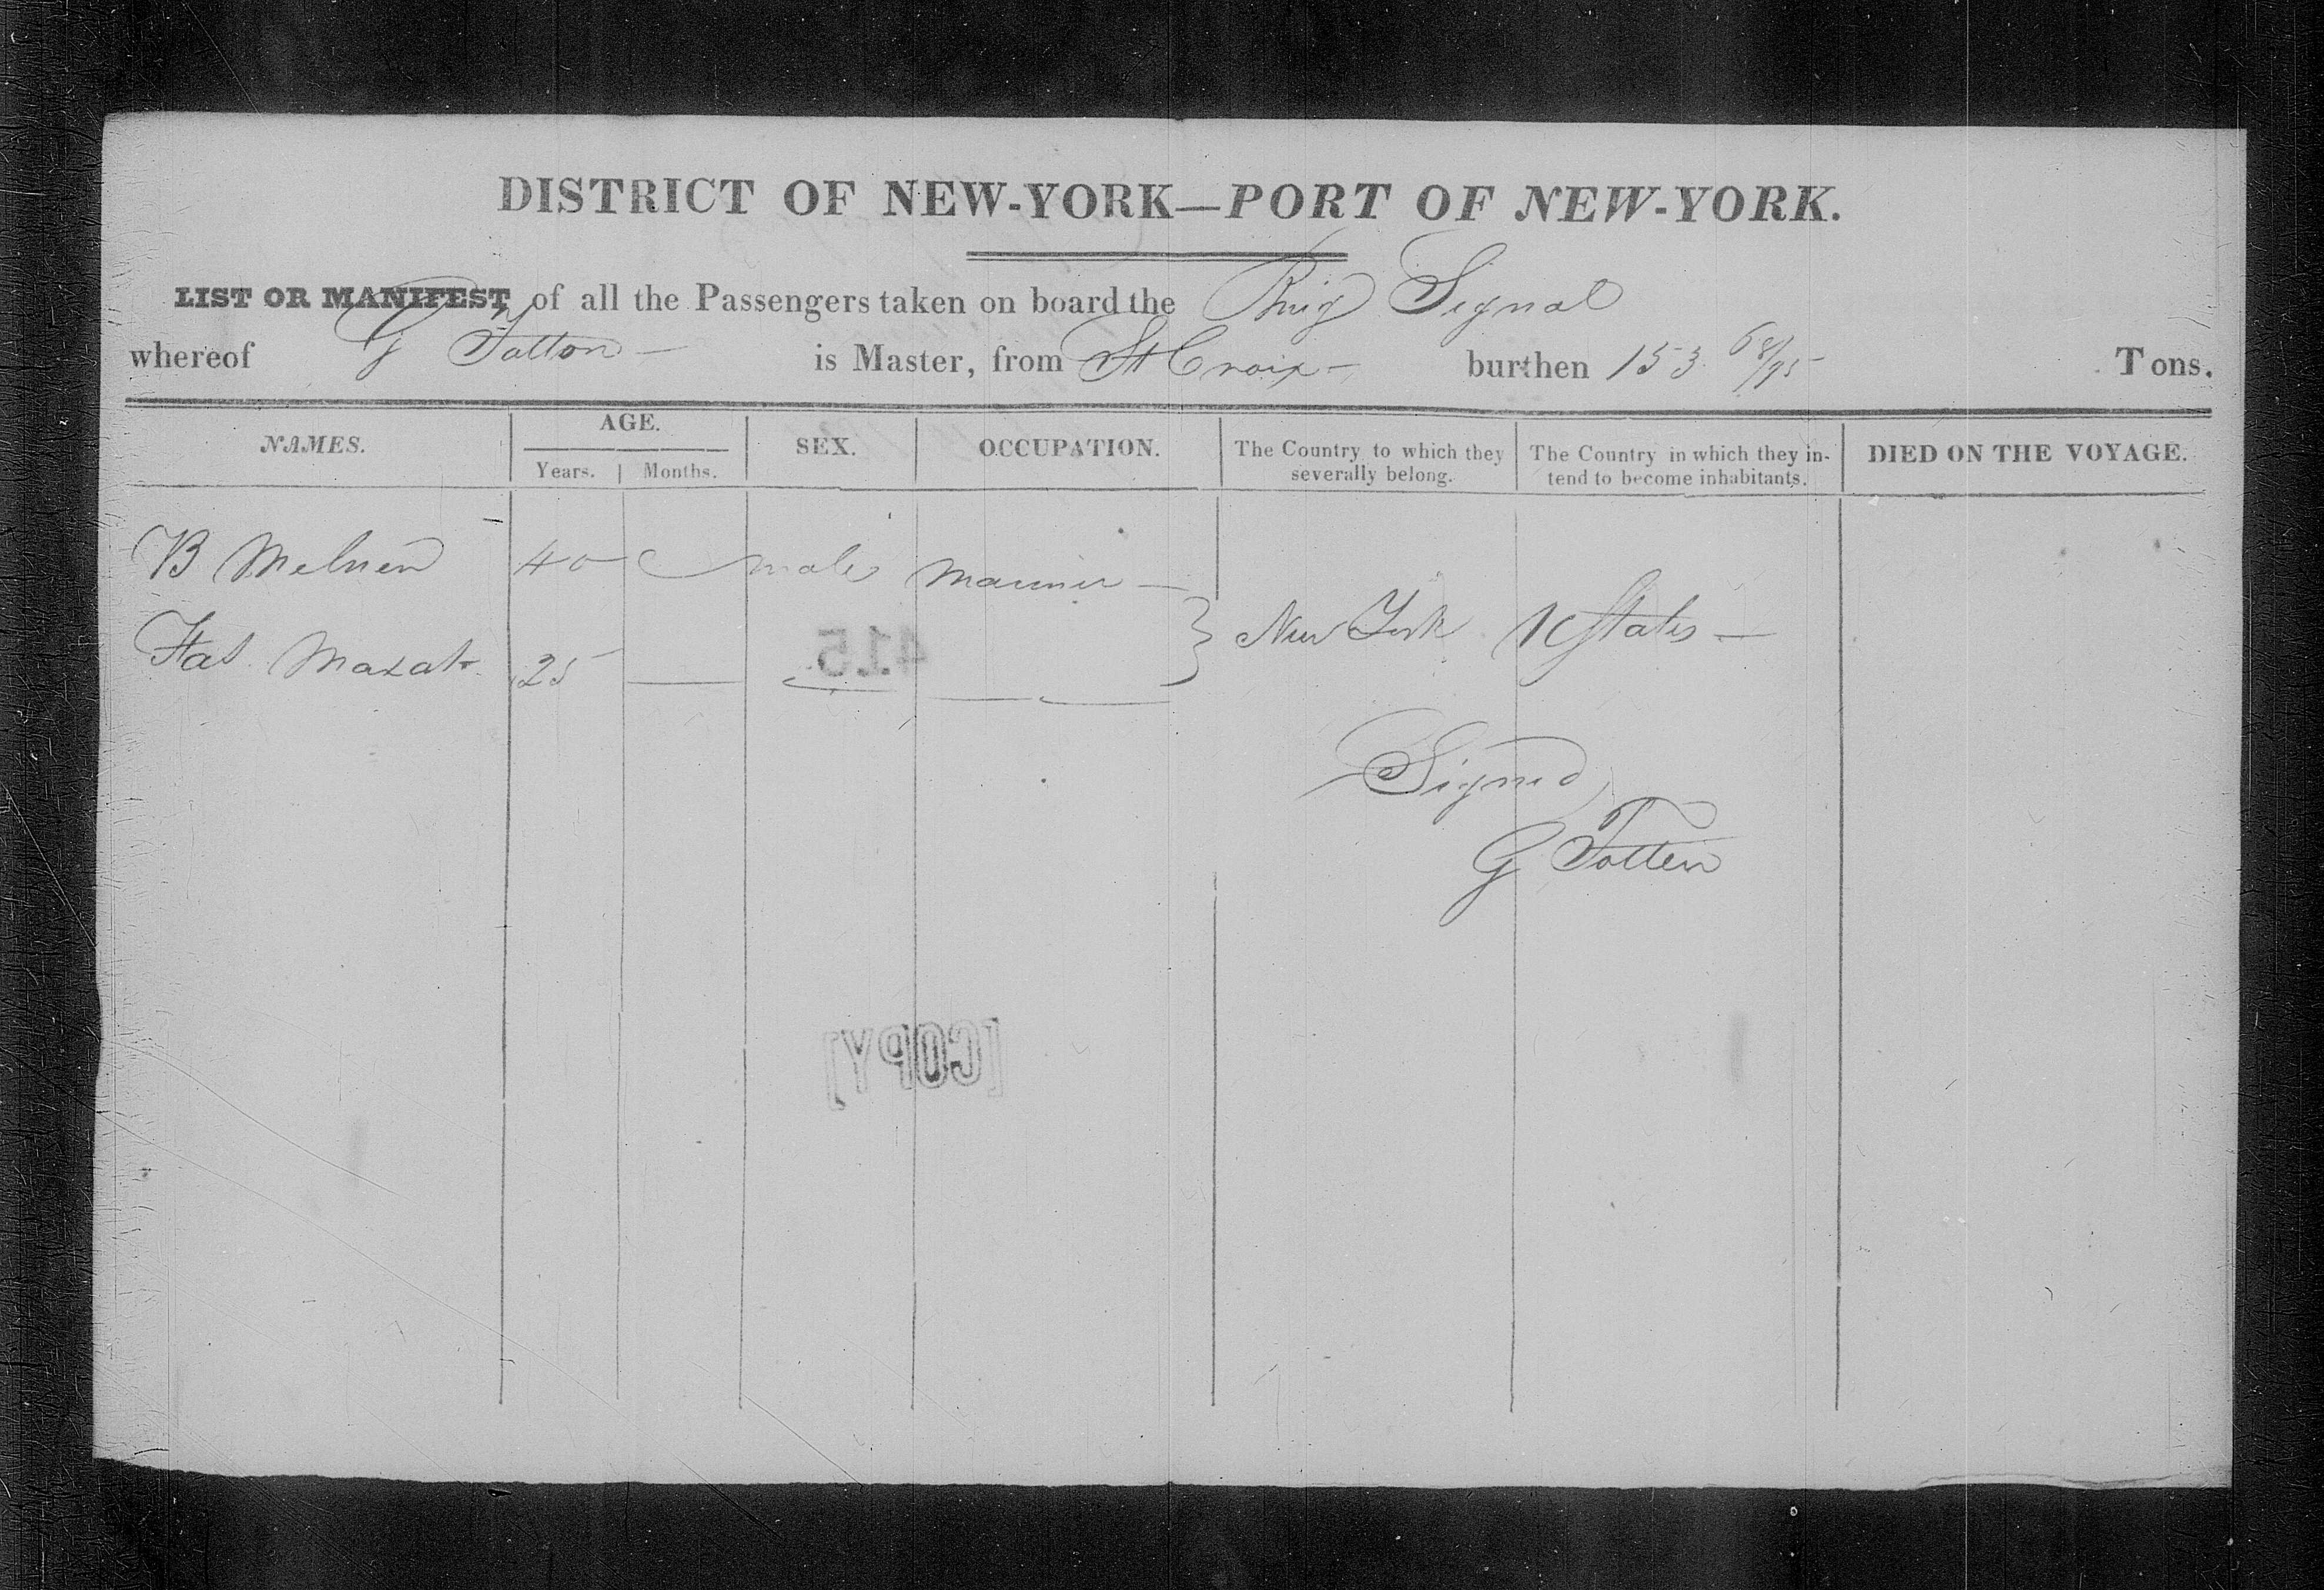 DISTRICT OF NEW-YORK—PORT OF NEW-YORK.
LIST OR MANIFEST, of all the Passengers taken on board the Brig Signal
whereof G Totton — is Master, from St Croix — burthen 153 68/95 Tons.
NAMES. AGE. SEX. OCCUPATION. The Country to which they severally belong. The Country in which they intend to become inhabitants. DIED ON THE VOYAGE.
Years. Months.
B 40 male Mariner —
25 New York States —
415
Signed
G Totten
[COPY]